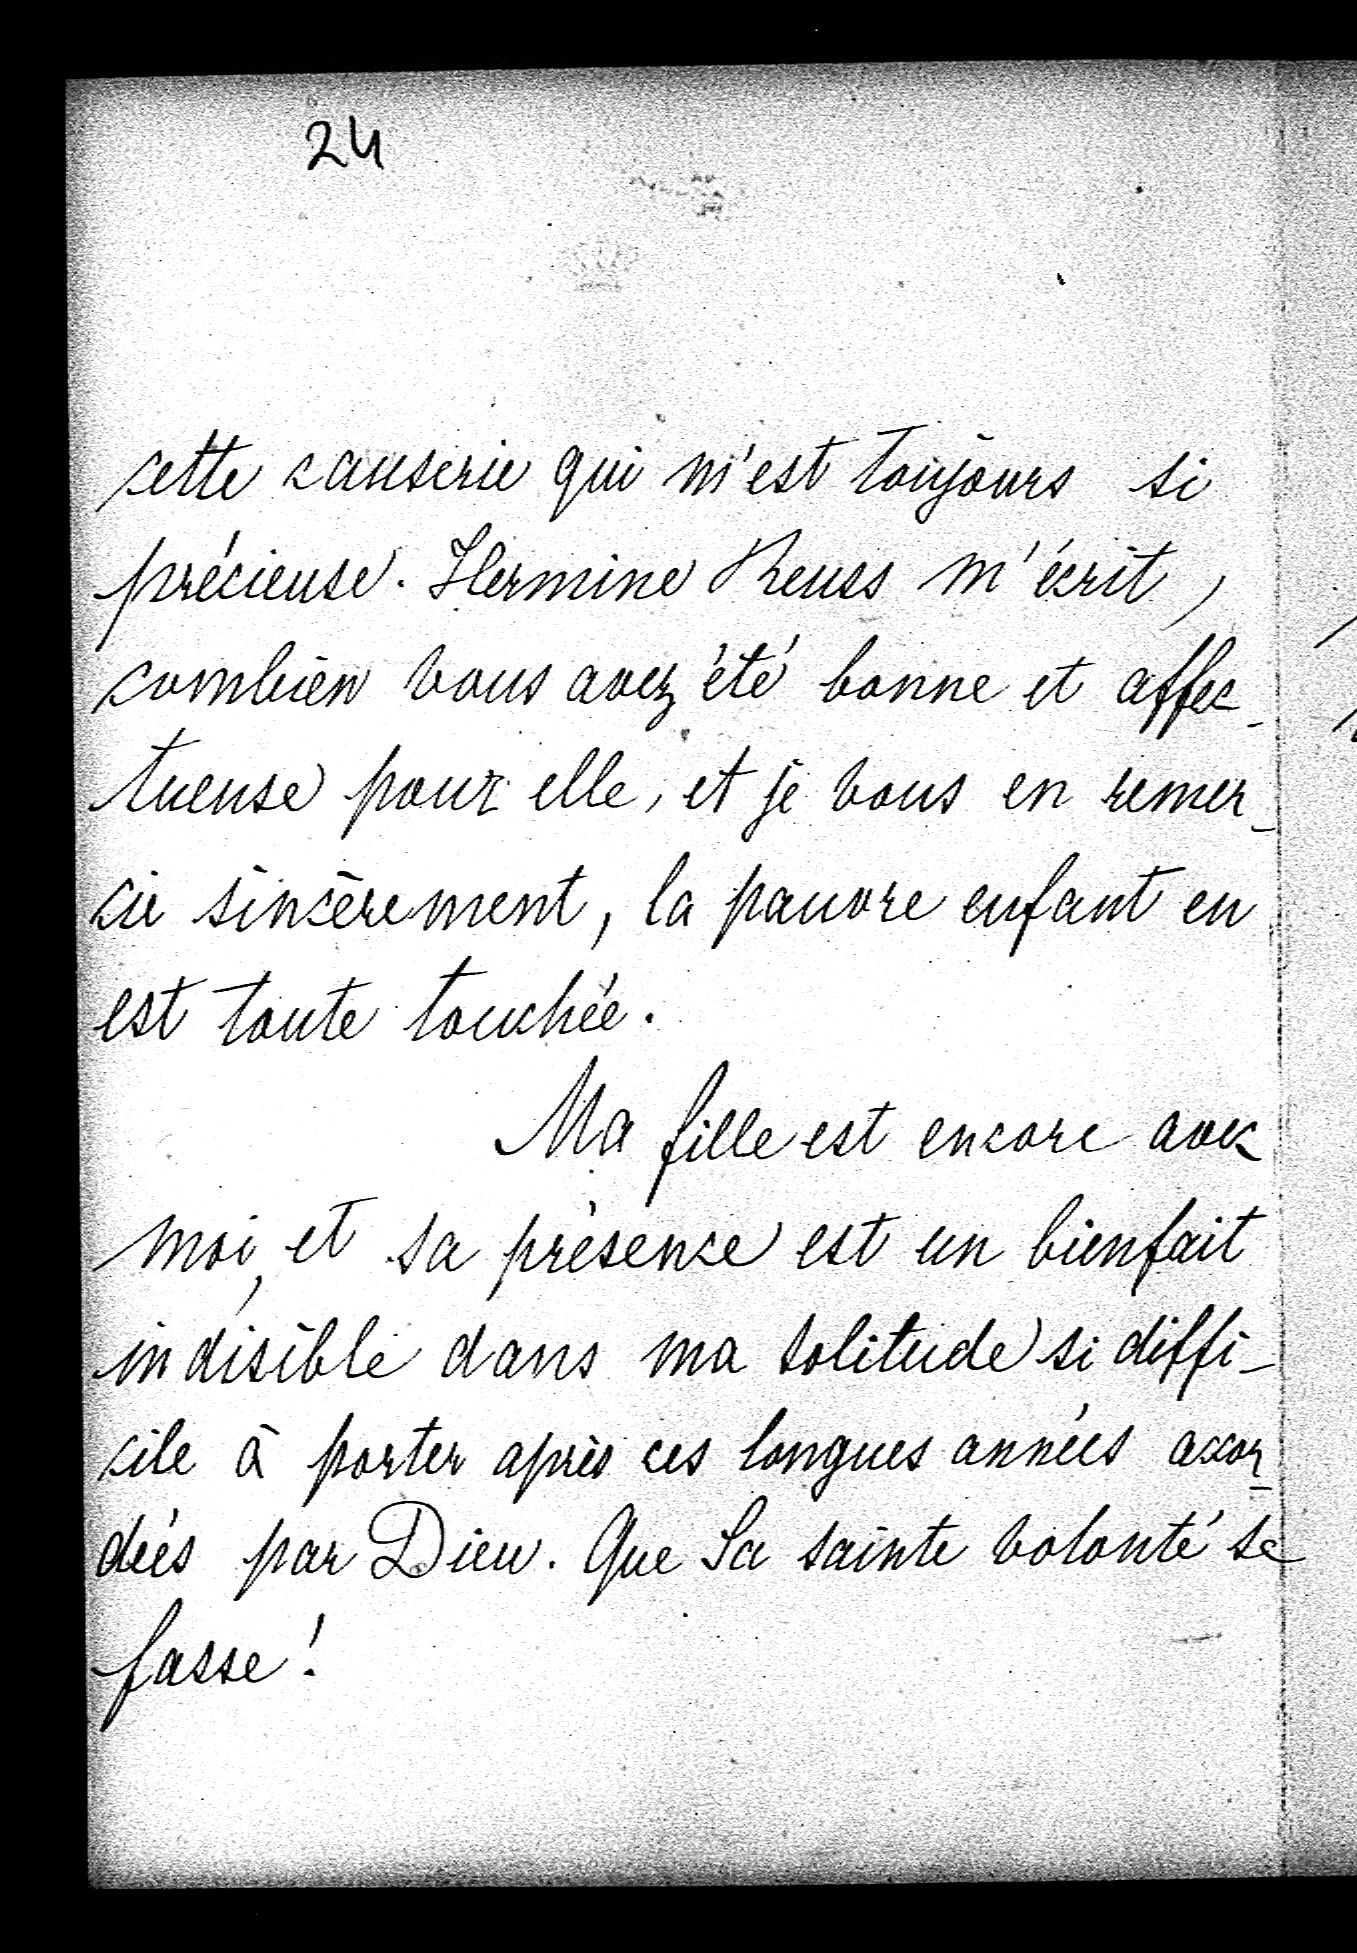 24
cette causerie qui m'est toujours si
précieuse. Hermine Reuss m'écrit,
combien vous avez été bonne et affec-
tueuse pour elle, et je vous en remer-
cie sincèrement, la pauvre enfant en
est toute touchée.
Ma fille est encore avec
moi, et sa présence est un bienfait
indisible dans ma solitude si diffi-
cile à porter après ces longues années accor-
dées par Dieu. Que Sa sainte volonté se
fasse!